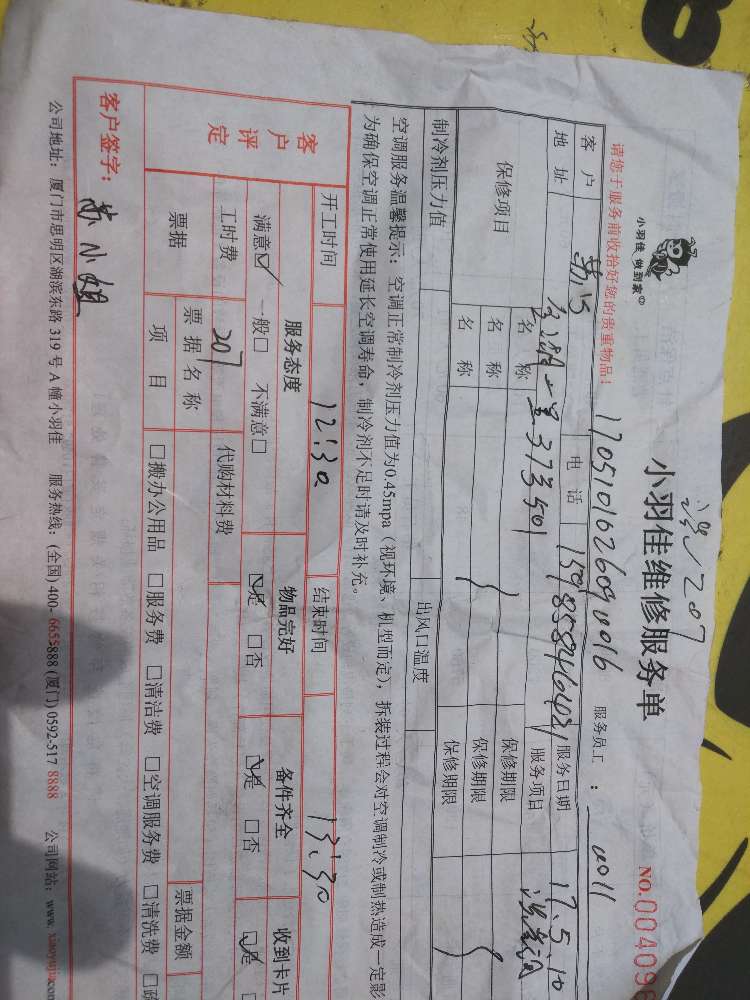 小羽佳 做到家
小羽佳维修服务单
NO.004096
207
请您于服务前收拾好您的贵重物品!
服务员工:
客户
电话
服务日期 17.5.10
地址
313501
服务项目
保修项目
名称
保修期限
名称
保修期限
名称
保修期限
制冷剂压力值
出风口温度
空调服务温馨提示:空调正常制冷剂压力值为0.45mpa(视环境、机型而定),拆装过程会对空调制冷或制热造成一定影
为确保空调正常使用延长空调寿命,制冷剂不足时请及时补充。
客户评定
开工时间 12:30 结束时间 13:30
服务态度 物品完好 备件齐全 收到卡片
满意☑ 一般□ 不满意□ ☑是 □否 ☑是 □否 ☑是
工时费 207 代购材料费
票据 票据名称 票据金额
项目 □搬办公用品 □服务费 □清洁费 □空调服务费 □清洗费
客户签字: 苏小姐
公司地址:厦门市思明区湖滨东路 319 号 A 幢小羽佳 服务热线:(全国) 400-6655888 (厦门) 0592-517 8888 公司网站:www.xiaoyujia.com